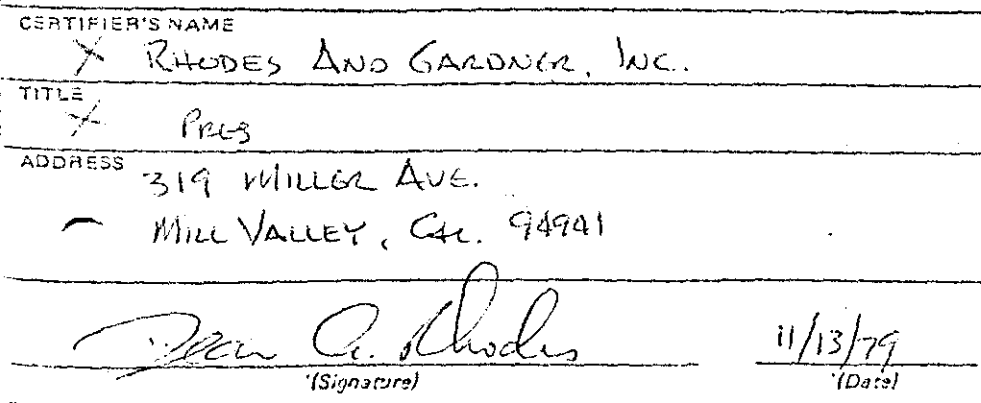 CERTIFIER'S NAME
X RHODES AND GARDNER, INC.
TITLE
X PRES
ADDRESS 319 MILLER AVE.
MILL VALLEY, CAL. 94941
Dean A. Rhodes 11/13/79
(Signature) (Date)